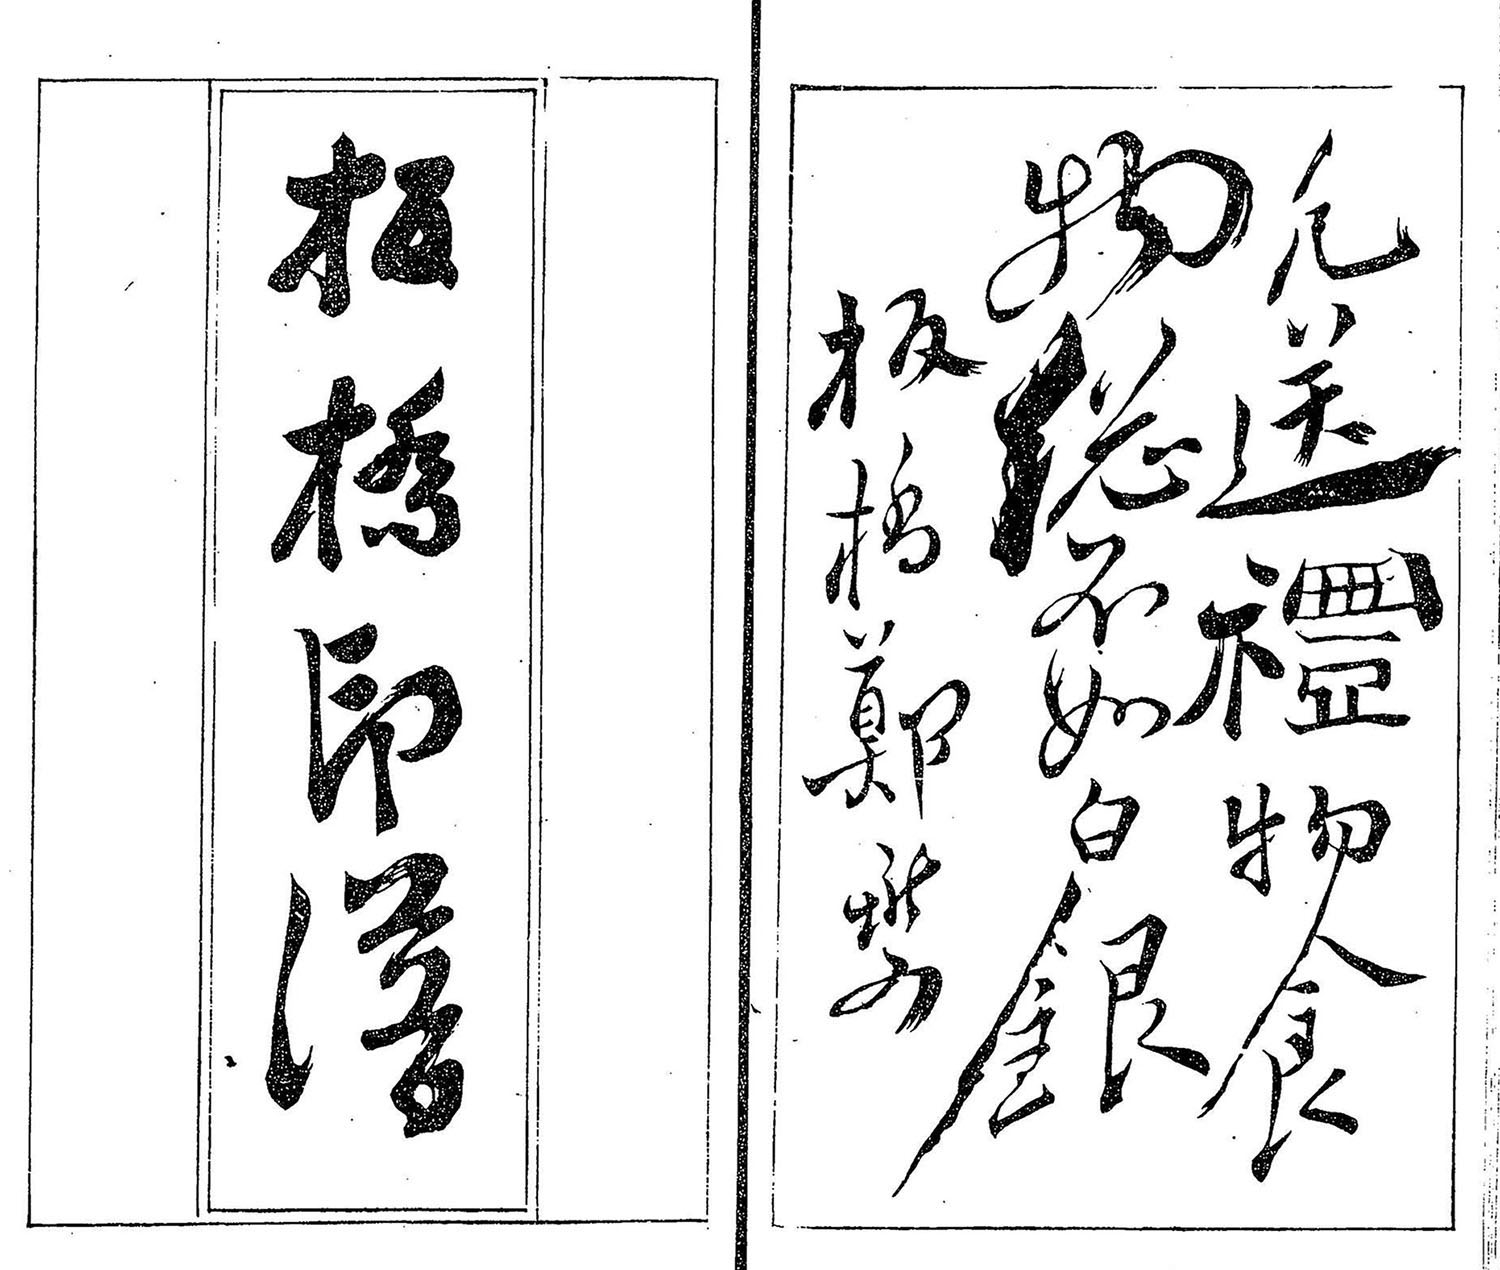 凡送禮物食
物總不如白銀
板橋鄭燮
板橋印譜